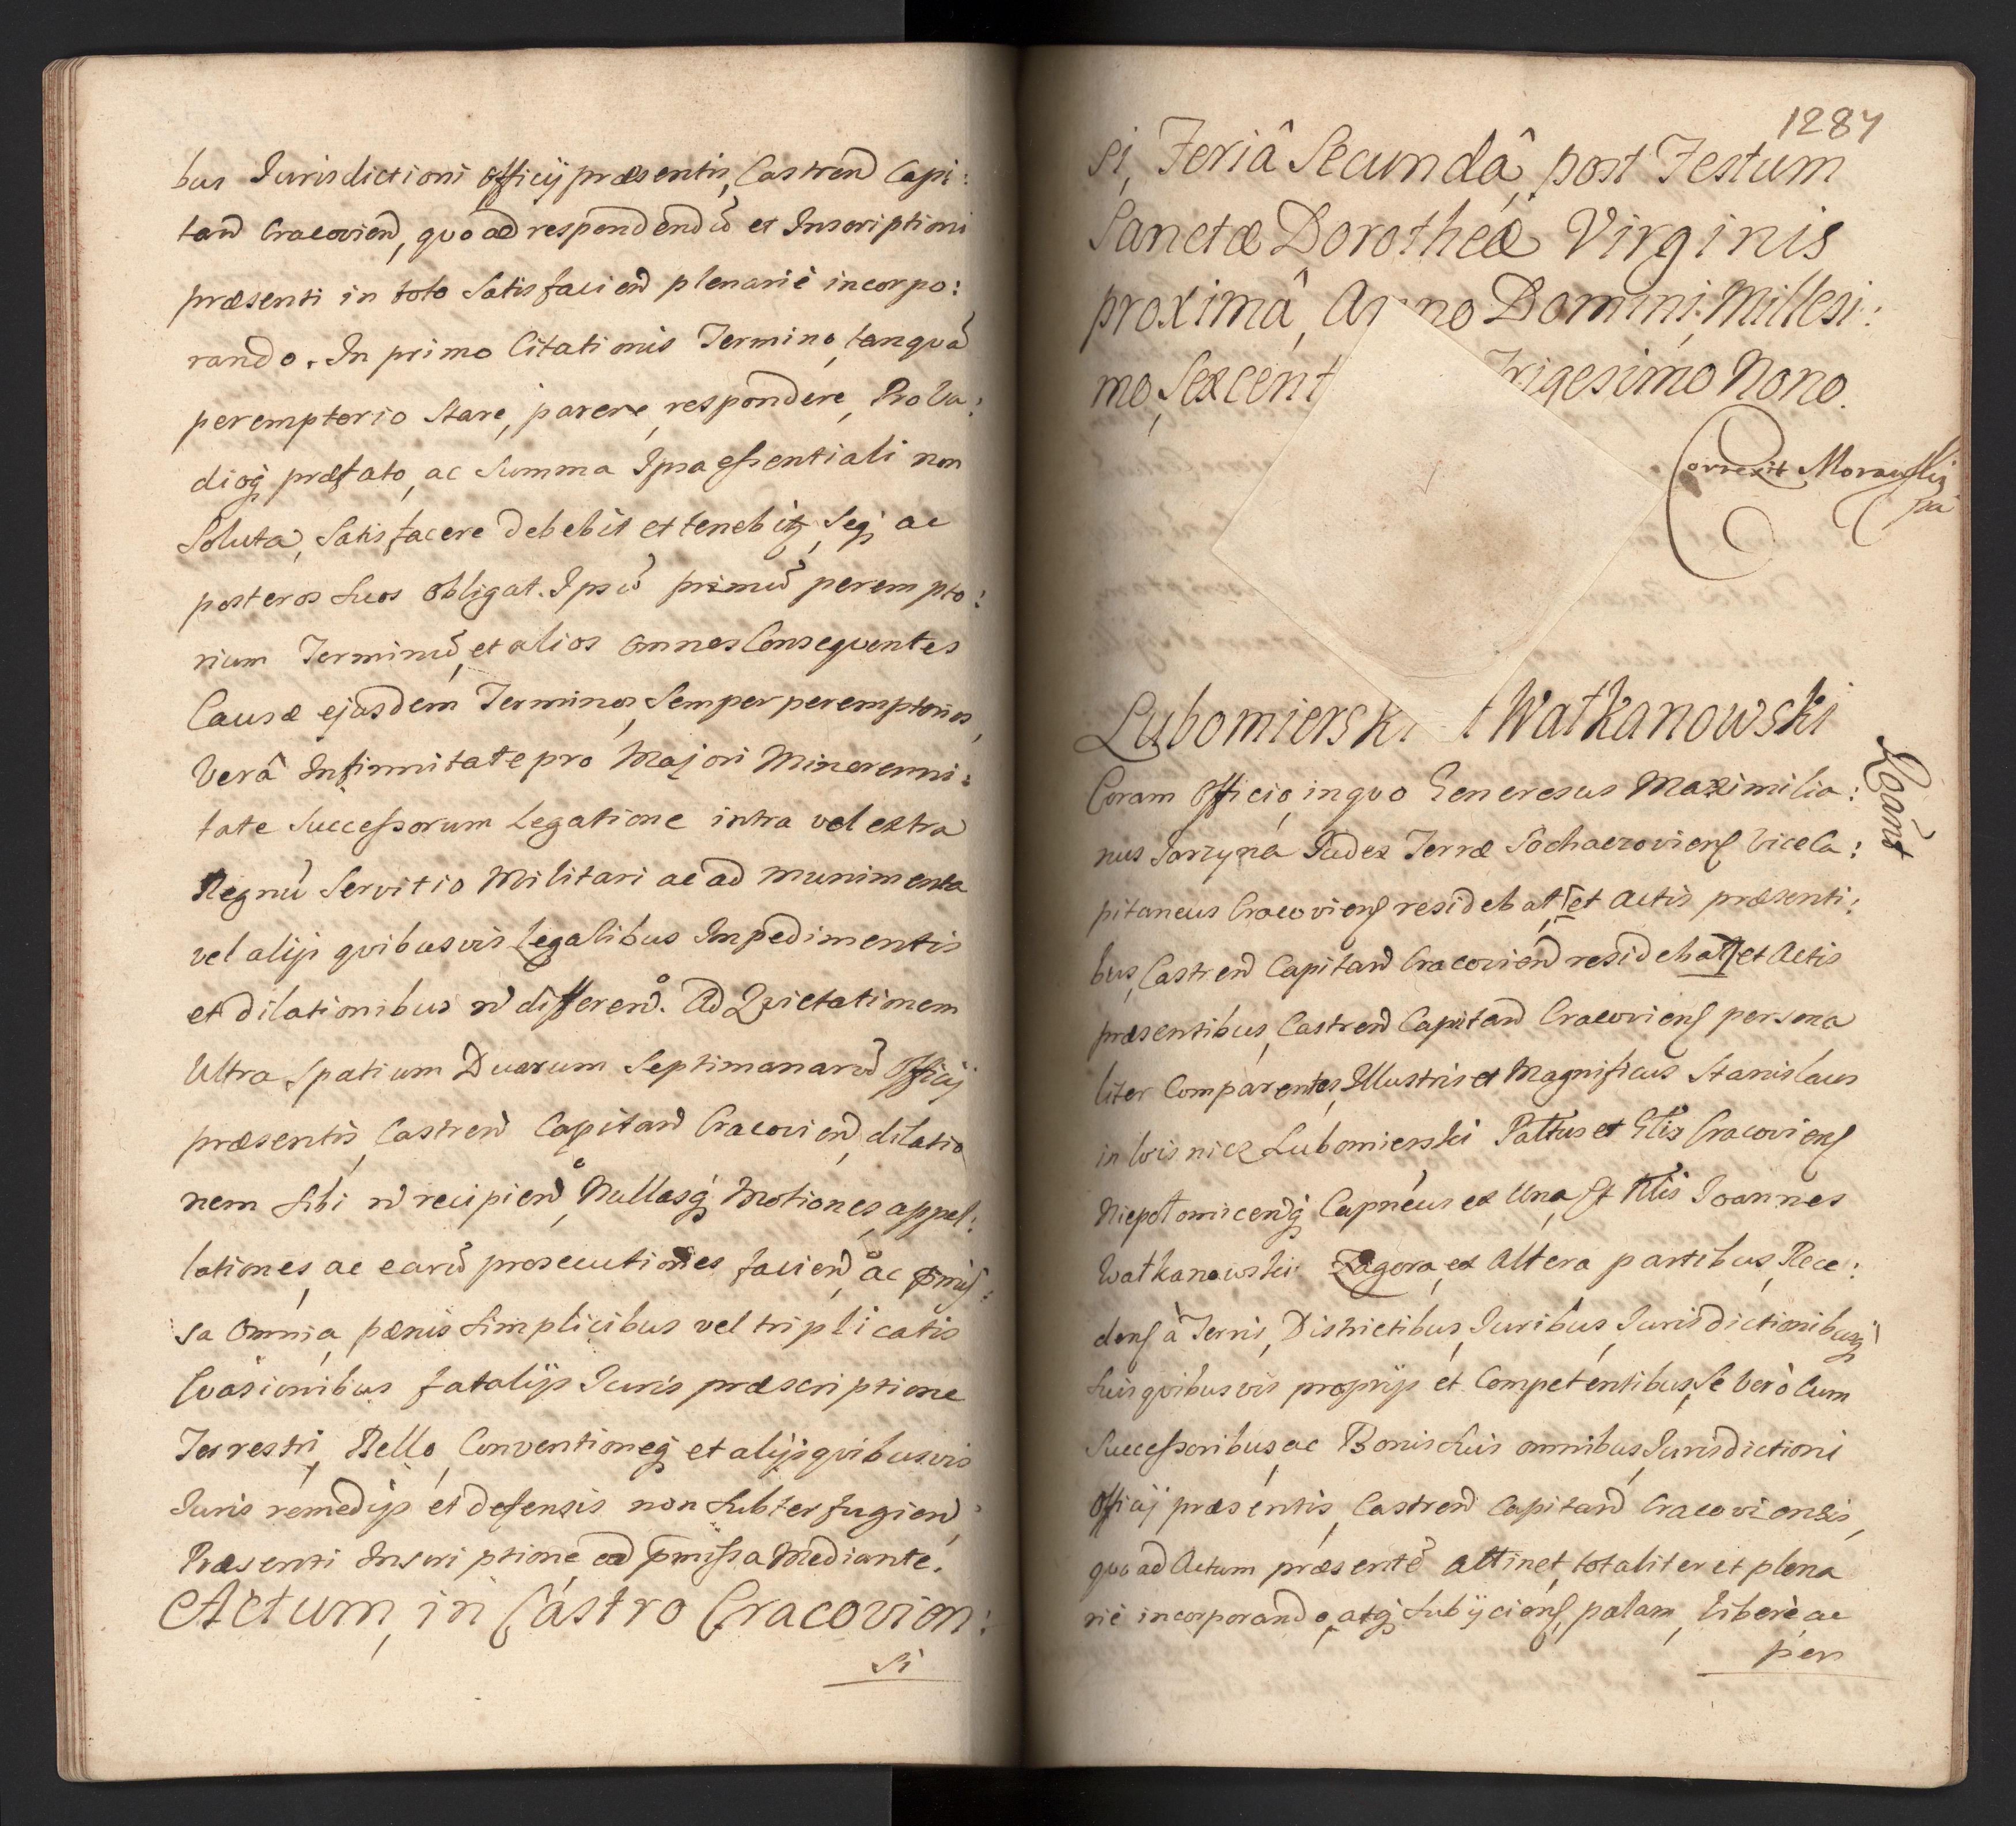 bus Jurisdictioni Officij præsentis, Castreñ Capi:
tañ Cracovieñ, quo ad respondendũ et Inscriptioni
præsenti in toto Satisfacieñ plenariè incorpo:
rando. In primo Citationis Termino, tanquã
peremptorio Stare, parere, respondere, Pro Va:
dioq́ præfato, ac Summa Ipsa essentiali non
Soluta, Satisfacere debebit et tenebitꝫ, Seq́ ac
posteros Suos Obligat. Ipsũ primũ perempto:
rium Terminũ, et alios omnes Consequentes
Causæ ejusdem Terminos, Semper peremptorios,
Verâ Infirmitate pro Majori Minorenni:
tate Successorum Legatione intra vel extra
Regnũ Servitio Militari ac ad munimenta
vel alijs quibusvis Legalibus Impedimentis
et dilationibus ñ differeñ. Ad Quietationem
Ultra Spatium Duarum Septimanarũ Officij
præsentis, Castreñ Capitañ Cracovieñ, dilatio
nem Sibi ñ recipieñ, Nullasq́ Motiones, appel:
lationes, ac earũ prosecutiones facieñ, ac p̃mis:
sa Omnia, pænis Simplicibus vel triplicatis
Evasionibus fatalijs Juris præscriptione
Terrestri, Bello, Conventioneq́ et alijs quibusvis
Juris remedijs et defensis non Subterfugieñ,
Præsenti Inscriptione ad p̃missa Mediante.
Actum, in Castro Cracovien:
si
1287
si, Feriâ Secundâ, post Festum
Sanctæ Dorotheæ Virginis
proximâ, Anno Domini, Millesi:
mo, Sexcent rigesimo Nono.
Correxit Morawski
Lubomierski t Watkanowski
Roãt
Coram Officio, in quo Generosus Maximilia:
nus Jarzyna Judex Terræ Sochaczoviens̃ Viceca:
pitaneus Cracoviens̃ residebat, et Actis præsenti:
bus, Castreñ Capitañ Cracovieñ residebat et Actis
præsentibus, Castreñ Capitañ Cracoviens̃ persona
liter Comparentes, Illustris et Magnificus Stanislaus
in Wisnicz Lubomierski Palt̃us et Glĩs Cracoviens̃
Niepołomiceñq́ Capneus ex Una, et Nl̃is Joannes
Watkanowski Zagora, ex Altera partibus, Rece:
dens̃ à Terris, Districtibus, Juribus, Jurisdictionibusq́
Suis quibusvis proprijs et Competentibus, Se Verò Cum
Successoribus, ac Bonis Suis omnibus, Jurisdictioni
Officij præsentis, Castreñ Capitañ Cracoviensis,
quo ad Actum præsentẽ attinet, totaliter et plena
riè incorporando, atq́ Subijciens̃, palam, liberè ac
per